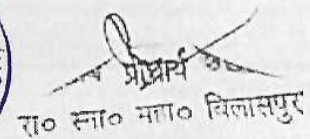 प्राचार्य
रा० स्ना० महा० विलासपुर